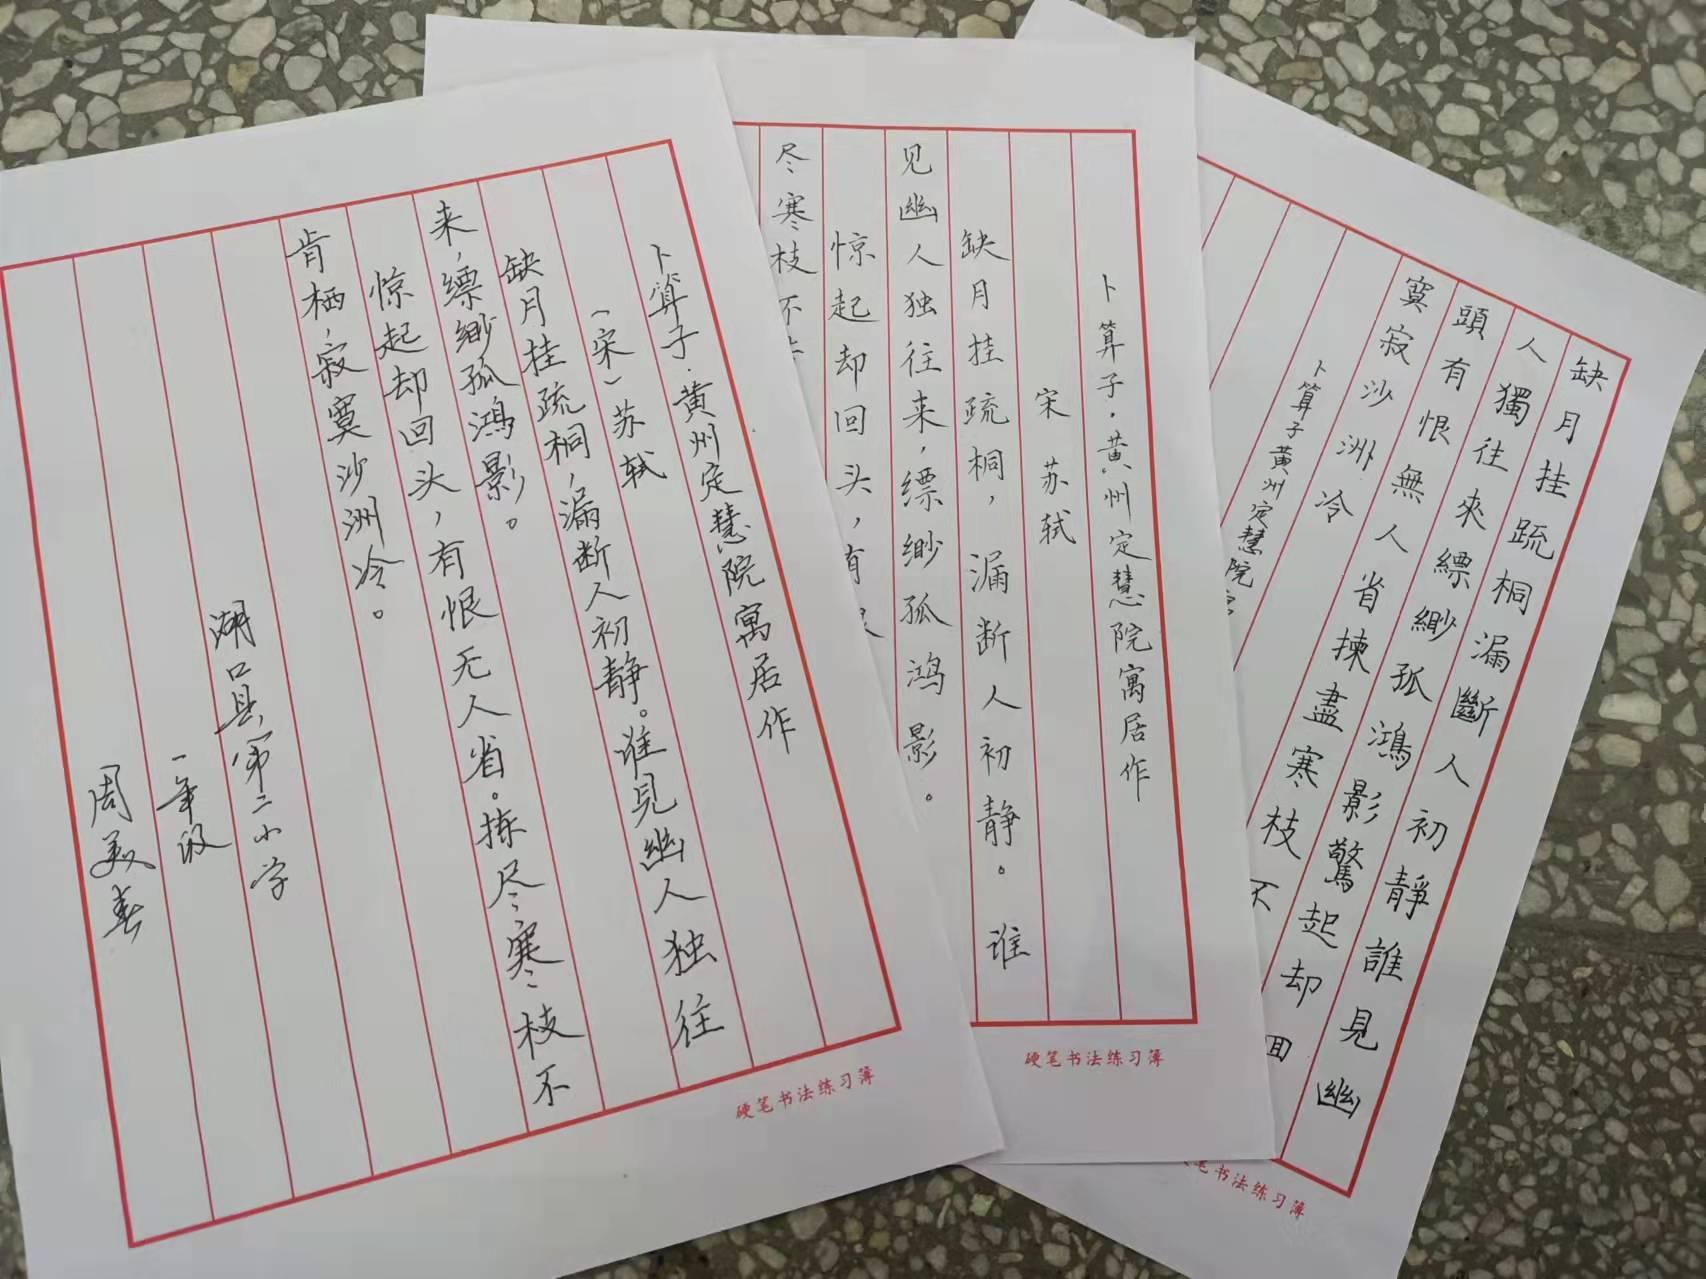 卜算子·黄州定慧院寓居作
（宋）苏轼
缺月挂疏桐，漏断人初静。谁见幽人独往
来，缥缈孤鸿影。
惊起却回头，有恨无人省。拣尽寒枝不
肯栖，寂寞沙洲冷。
湖口县第二小学
一年级
周美春
硬笔书法练习簿
卜算子·黄州定慧院寓居作
宋 苏轼
缺月挂疏桐，漏断人初静。谁
见幽人独往来，缥缈孤鸿影。
惊起却回头，有
尽寒枝不
硬笔书法练习簿
缺月挂疏桐漏斷人初靜誰見幽
人獨往來縹緲孤鴻影驚起却回
頭有恨無人省揀盡寒枝不
寞寂沙洲冷
卜算子黄州定慧院
笔书法练习簿